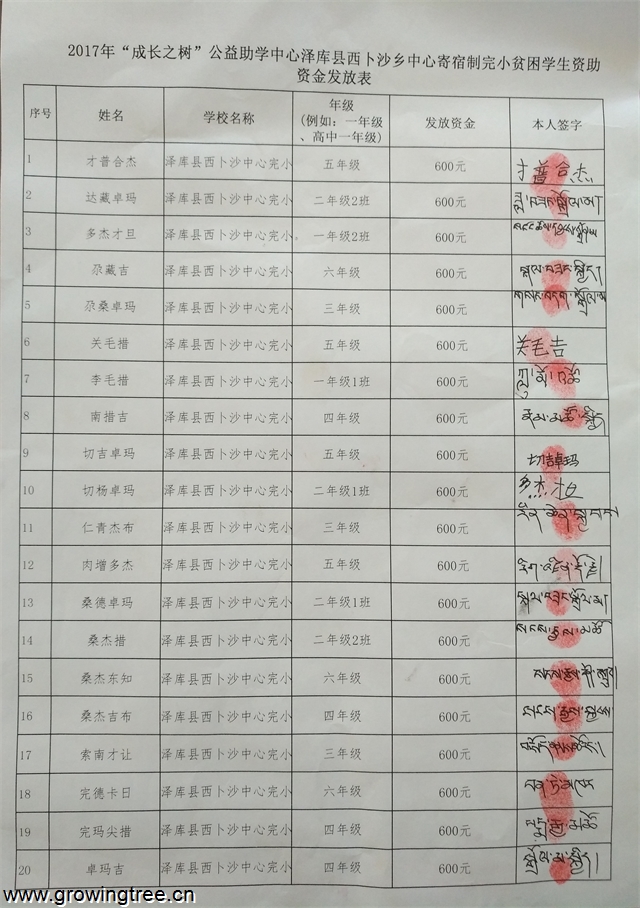 2017年“成长之树”公益助学中心泽库县西卜沙乡中心寄宿制完小贫困学生资助
资金发放表
序号 姓名 学校名称 年级 (例如：一年级、高中一年级) 发放资金 本人签字
1 才普合杰 泽库县西卜沙中心完小 五年级 600元 才普合杰
2 达藏卓玛 泽库县西卜沙中心完小 二年级2班 600元
3 多杰才旦 泽库县西卜沙中心完小 一年级2班 600元
4 尕藏吉 泽库县西卜沙中心完小 六年级 600元
5 尕桑卓玛 泽库县西卜沙中心完小 三年级 600元
6 关毛措 泽库县西卜沙中心完小 五年级 600元 关毛吉
7 李毛措 泽库县西卜沙中心完小 一年级1班 600元
8 南措吉 泽库县西卜沙中心完小 四年级 600元
9 切吉卓玛 泽库县西卜沙中心完小 五年级 600元 切吉卓玛
10 切杨卓玛 泽库县西卜沙中心完小 二年级1班 600元
11 仁青杰布 泽库县西卜沙中心完小 三年级 600元
12 肉增多杰 泽库县西卜沙中心完小 五年级 600元
13 桑德卓玛 泽库县西卜沙中心完小 二年级1班 600元
14 桑杰措 泽库县西卜沙中心完小 二年级2班 600元
15 桑杰东知 泽库县西卜沙中心完小 六年级 600元
16 桑杰吉布 泽库县西卜沙中心完小 四年级 600元
17 索南才让 泽库县西卜沙中心完小 三年级 600元
18 完德卡日 泽库县西卜沙中心完小 六年级 600元
19 完玛尖措 泽库县西卜沙中心完小 四年级 600元
20 卓玛吉 泽库县西卜沙中心完小 四年级 600元
www.growingtree.cn